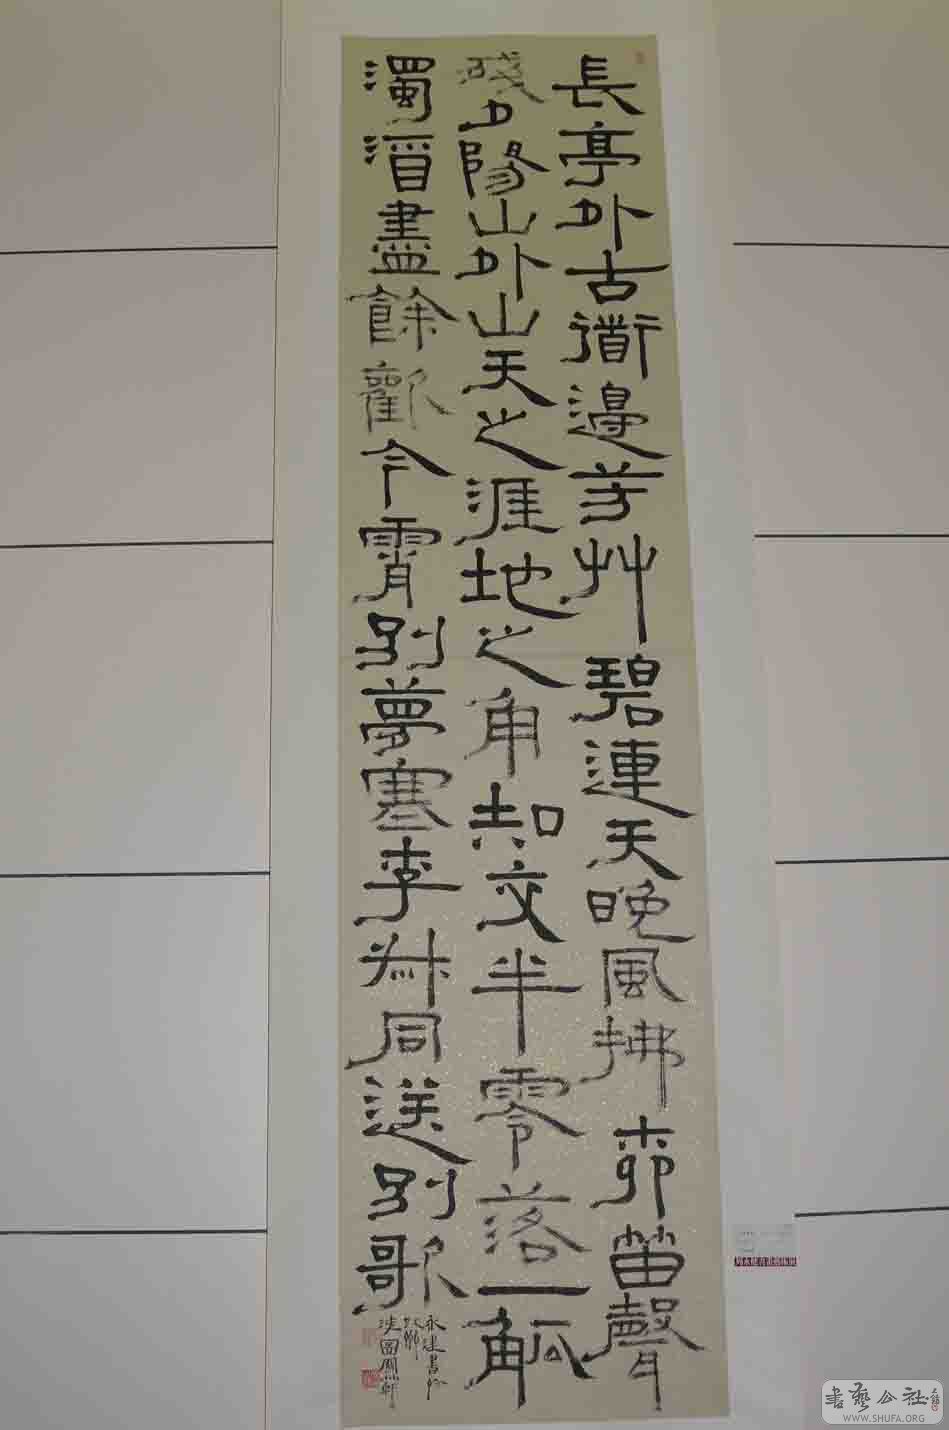 長亭外古衟邊芳艸碧連天晚風拂桺笛聲
殘夕陽山外山天之涯地之角知交半零落一觚
濁酒盡餘歡今霄別夢寒李叔同送別歌
永建書於
軒
書藝公社
WWW.SHUFA.ORG